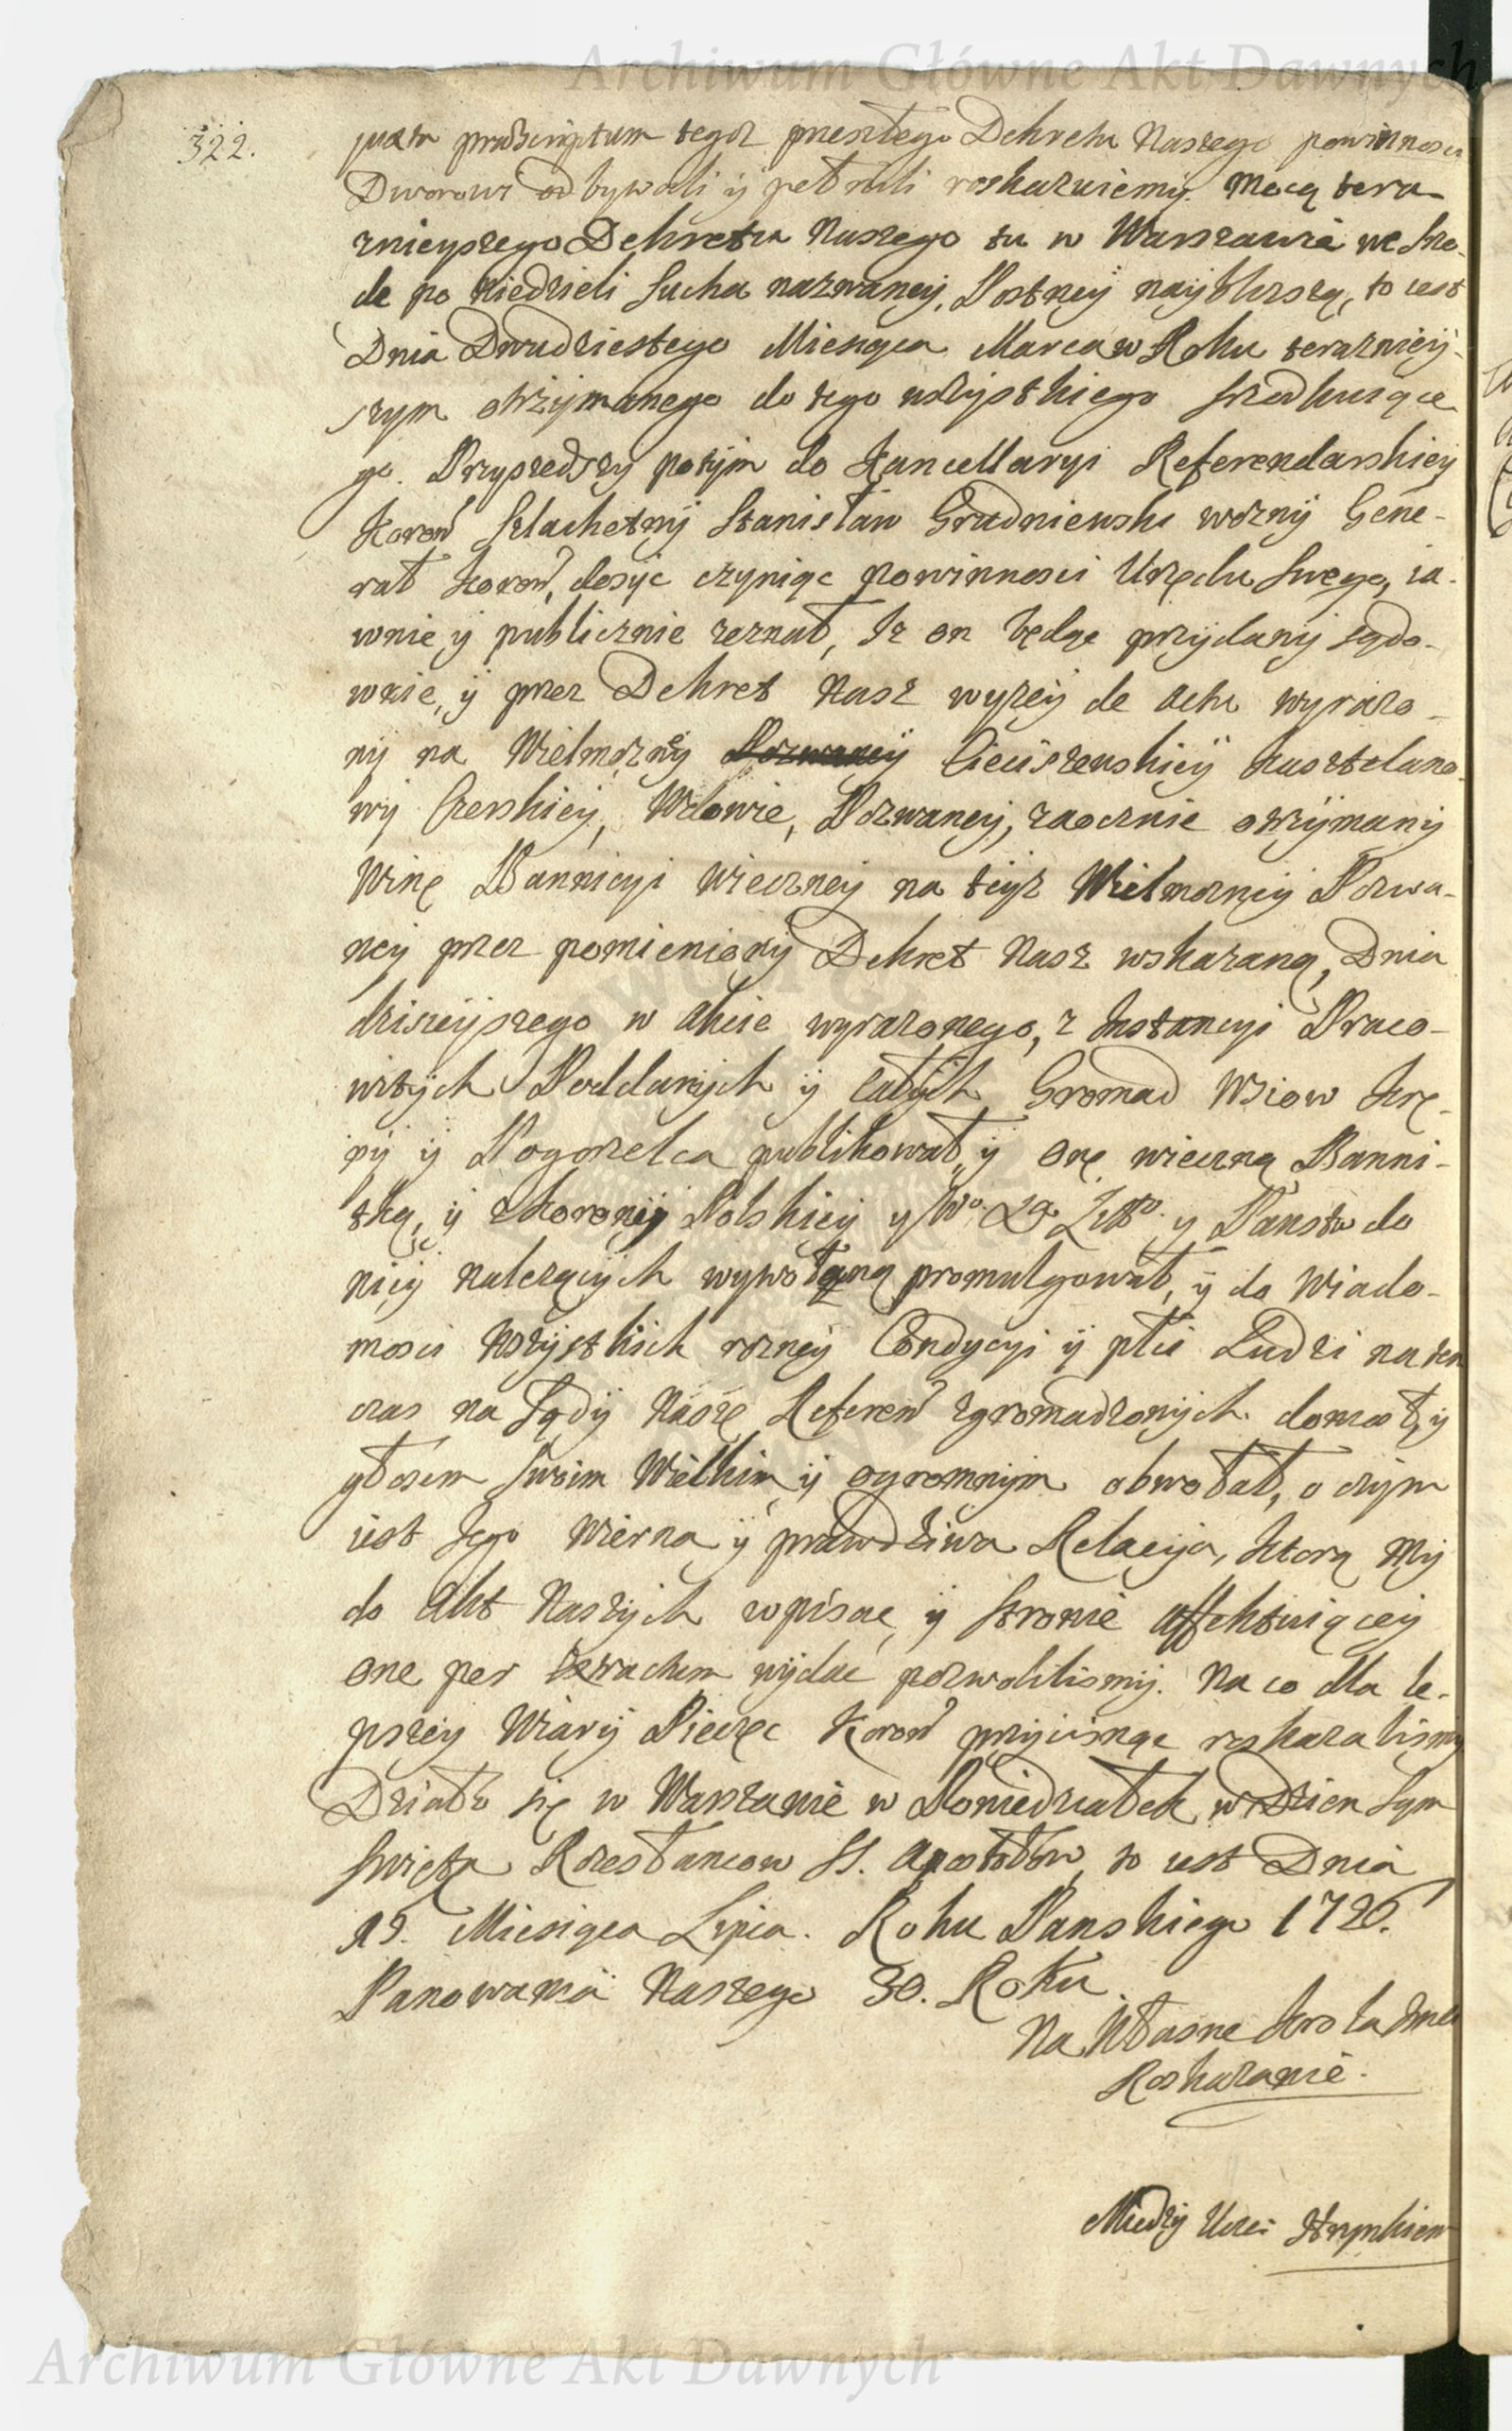 Archiwum Główne Akt Dawnych
322.
juxta praescriptum tegoz przeszłego Dekretu Naszego powinnosci
Dworowi odbywali ÿ pełnili roskazuiemy. Mocą tera-
znieyszego Dekretu Naszego tu w Warszawie we Srzo-
de po Niedzieli Sucha nazwaneÿ, Postneÿ nayblizszą, to iest
Dnia Dwudziestego Miesiąca Marca w Roku teraznieÿ-
szym otrzÿmanego do tego wszÿstkiego srzodkuiące
go. Przyszedszy potÿm do Kancellaryi Referendarskieÿ
Koroñ Szlachetnÿ Stanisław Grudniewski woznÿ Gene-
rał Koroñ, dosÿc czyniąc powinnosci Urzędu Swego, ia-
wnie ÿ publicznie zeznał, Iz on będąc przÿdanÿ sądo-
wnie, ÿ przez Dekret Nasz wyzeÿ de actu wyrazo-
nÿ na Wielmoznÿ Pozwaneÿ Cieciszewskieÿ Kasztelano-
wÿ Czerskieÿ, Wdowie, Pozwaneÿ, zaocznie otrzÿmanÿ
Winę Bannicyi Wieczneÿ na teÿz Wielmozneÿ Pozwa-
neÿ przez pomienionÿ Dekret Nasz wskazaną, Dnia
dzisieÿszego w akcie wyrazonego, z Instancyi Praco-
witÿch Poddanÿch ÿ całÿch Gromad Wsiow Krę-
pÿ ÿ Pogorzelca publikował, ÿ onę wieczną Banni-
tką, ÿ z Koronÿ Polskieÿ y Wo. Xa. Litto. y Panstw do
nieÿ nalezącÿch wywołaną promulgował, ÿ do Wiado-
mosci wszÿstkich rozneÿ Condycyi ÿ płci Ludzi na ten
czas na Sądÿ Nasze Refereñ zgromadzonÿch doniosł, ÿ
głosem swoim Wielkim ÿ ogromnÿm obwołał, o czÿm
iest Jego Wierna ÿ prawdziwa Relacyja, ktorą Mÿ
do Akt Naszÿch wpisac, ÿ stronie affektuiąceÿ
one per extractum wÿdac pozwolilismÿ. Na co dla le-
pszeÿ Wiarÿ Pieczęc Koroñ przÿcisnąc roskazalismÿ
Działo się w Warszawie w Poniedziałek w Dzien Sam
Swięta Rozesłancow SS. Apostołow, to iest Dnia
15. Miesiąca Lipca. Roku Panskiego 1726.
Panowania Naszego 30. Roku
Na Własne Krola Jmci
Roskazanie.
Miedzÿ Ucz:
Archiwum Główne Akt Dawnych